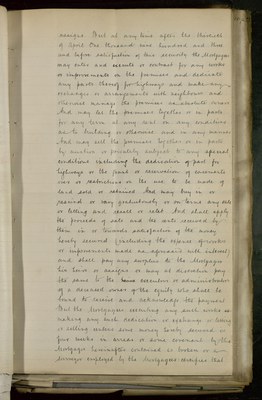 assigns. But at any time after the thirtieth
of April One thousand nine hundred and three
and before satisfaction of this security the Mortgagee
may enter and execute or contract for any works
or improvements on the premises and dedicate
any parts thereof for highways and make any
exchanges or arrangements with neighbours and
otherwise manage the premises as absolute owner
And may let the premises together or in parts
for any term at any rent on any conditions
as to building or otherwise and in any manner
And may sell the premises together or in parts
by auction or privately subject to any special
conditions including the dedication of part for
highways or the grant or reservation of easements
over or restrictions on the use to be made of
land sold or retained And may buy in or
rescind or vary gratuitously or on terms any sale
or letting and resell or relet And shall apply
the proceeds of sale and the rents received by
them in or towards satisfaction of the money
hereby secured (including the expense of works
or improvements made as aforesaid with interest)
and shall pay any surplus to the Mortgagor
his heirs or assigns or may at discretion pay
the same to the executors or administrators
of a deceased owner of the equity who shall be
bound to receive and acknowledge the payment
But the Mortgagees executing any such works or
making any such dedication or exchange or letting
or selling unless some money hereby secured is
five weeks in arrear or some covenant by the
Mortgagor hereinafter contained is broken or a
Surveyor employed by the Mortgagees certifies that